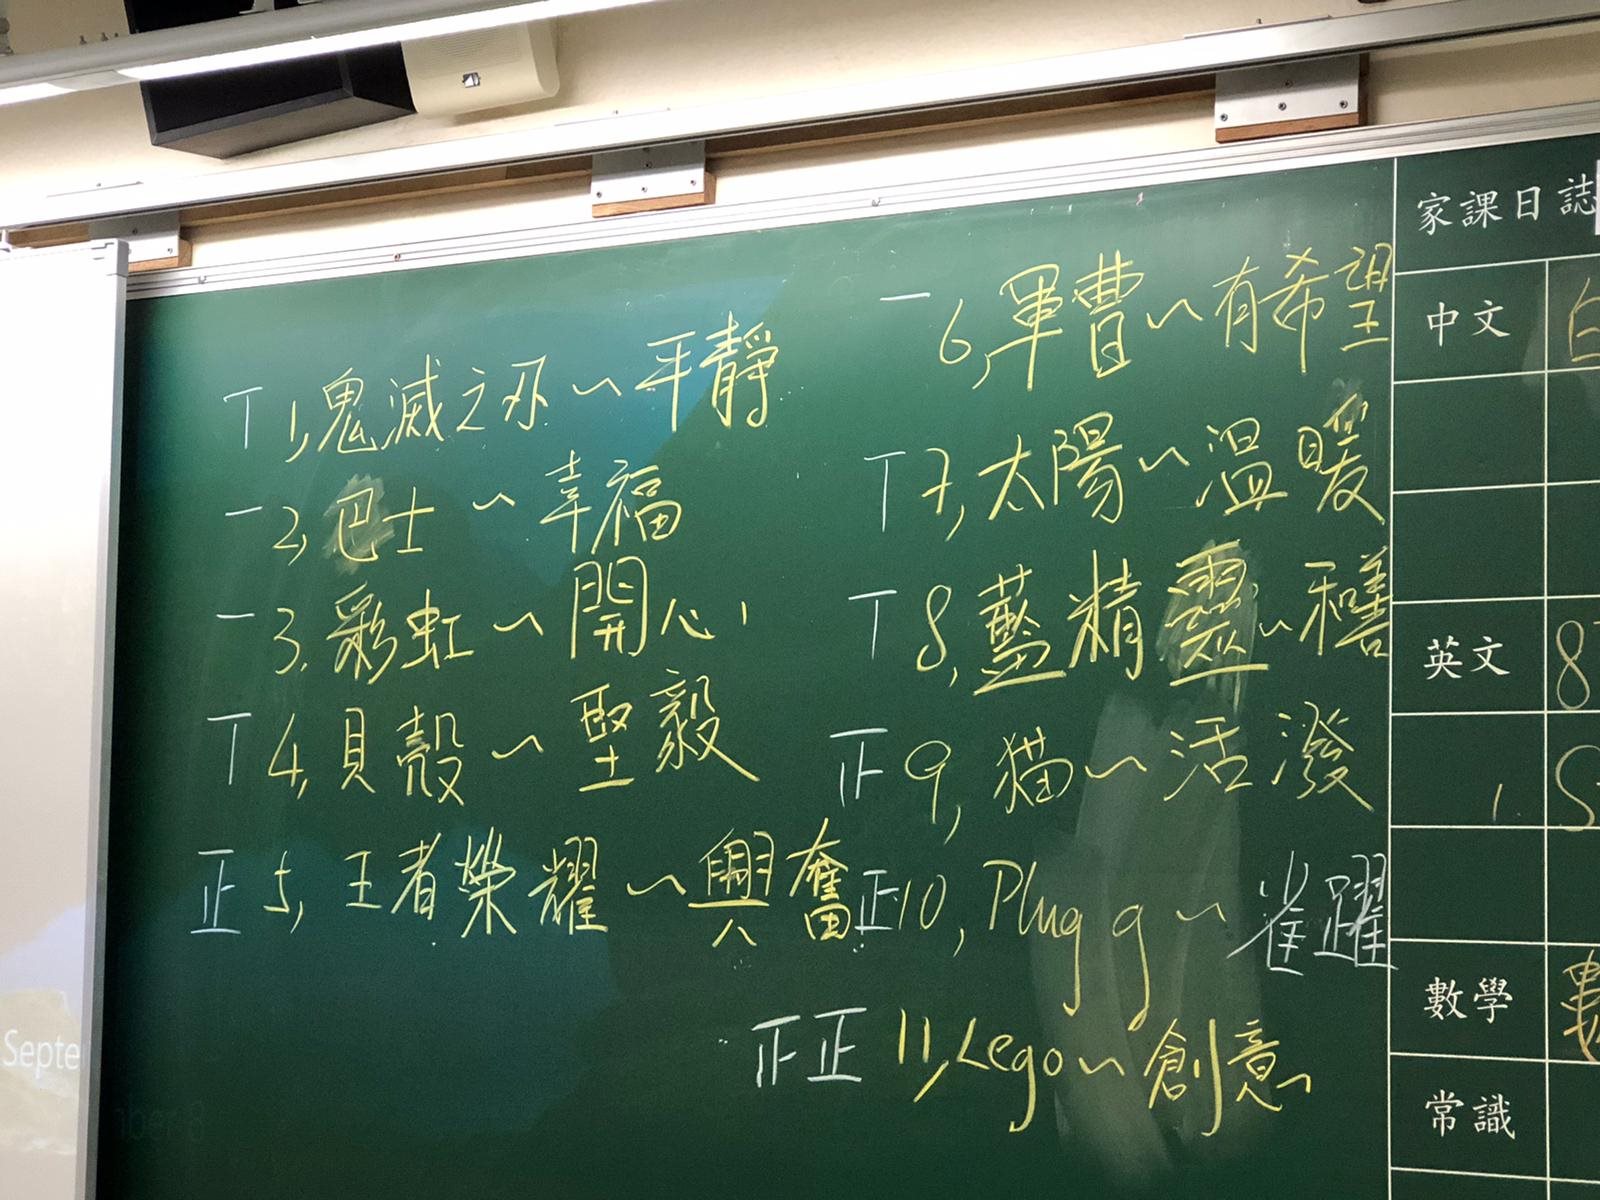 丅 1, 鬼滅之刃~平靜
一 2, 巴士~幸福
一 3, 彩虹~開心
丅 4, 貝殼~堅毅
正 5, 王者榮耀~興奮
一 6, 軍曹~有希望
丅 7, 太陽~溫暖
丅 8, 藍精靈~和善
正 9, 貓~活潑
正 10, Plug g~雀躍
正正 11, Lego~創意
家課日誌
中文
英文 8
1. S
數學 數
常識
Septe
mber 8